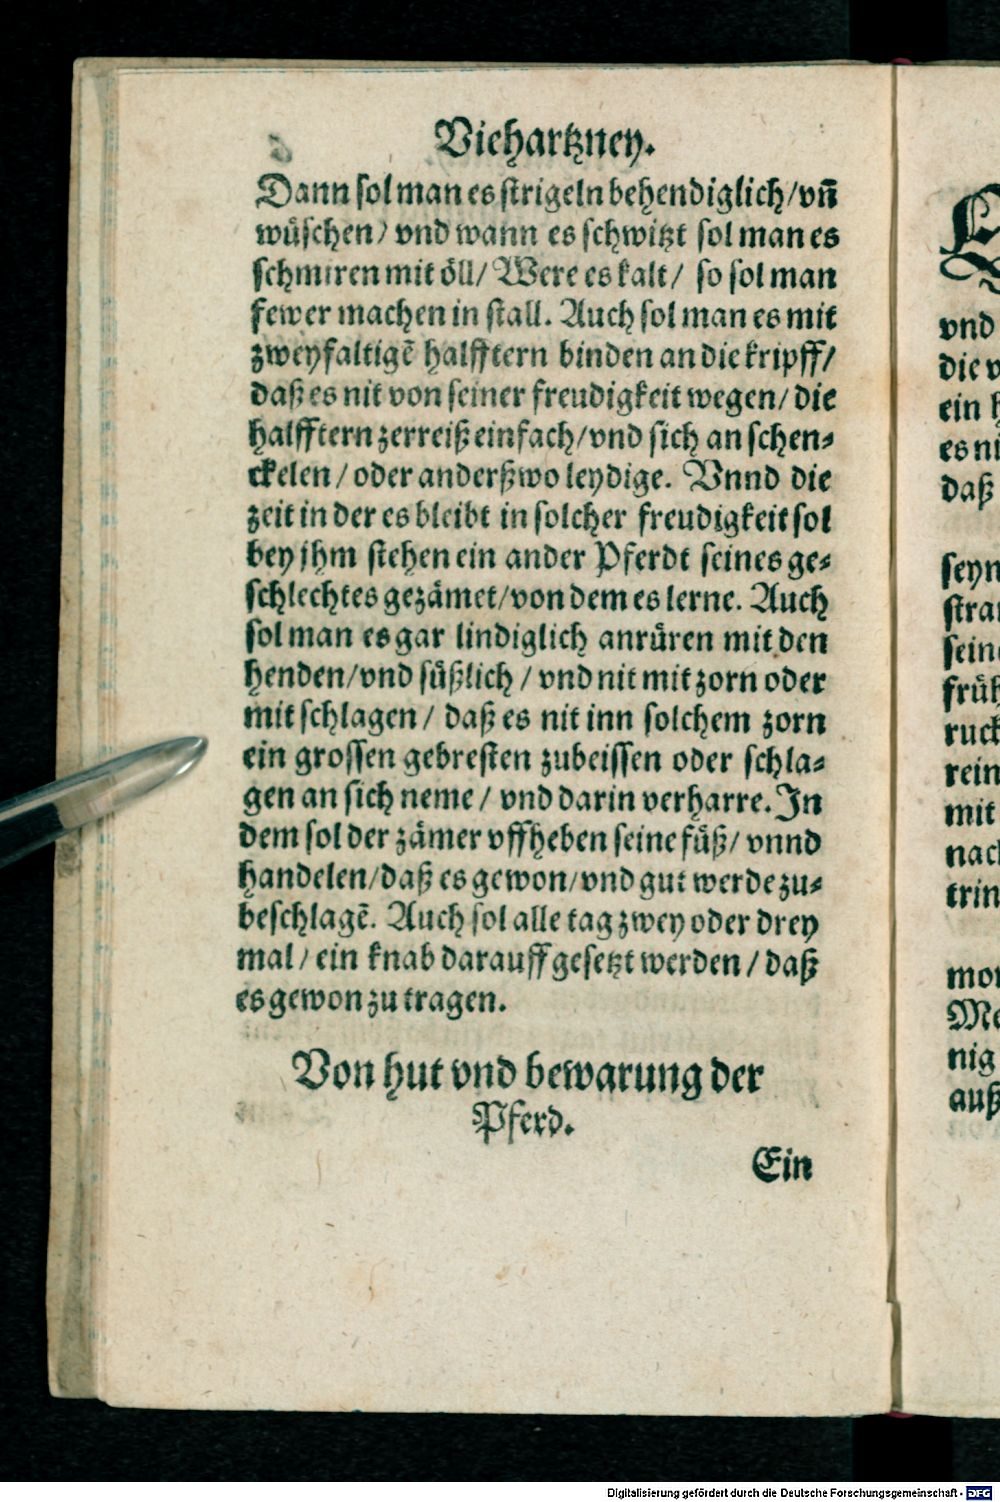 Viehartzney.
Dann sol man es strigeln behendiglich/vn̄
wüschen/ vnd wann es schwitzt sol man es
schmiren mit öll/ Were es kalt/ so sol man
fewer machen in stall. Auch sol man es mit
zweyfaltigē halfftern binden an die kripff/
daß es nit von seiner freudigkeit wegen/ die
halfftern zerreiß einfach/vnd sich an schen⸗
ckelen/ oder anderßwo leydige. Vnnd die
zeit in der es bleibt in solcher freudigkeit sol
bey jhm stehen ein ander Pferdt seines ge⸗
schlechtes gezämet/von dem es lerne. Auch
sol man es gar lindiglich anrüren mit den
henden/vnd süßlich / vnd nit mit zorn oder
mit schlagen/ daß es nit inn solchem zorn
ein grossen gebresten zubeissen oder schla⸗
gen an sich neme/ vnd darin verharre. In
dem sol der zämer vffheben seine füß/ vnnd
handelen/daß es gewon/vnd gut werde zu⸗
beschlagē. Auch sol alle tag zwey oder drey
mal/ ein knab darauff gesetzt werden/ daß
es gewon zu tragen.
Von hut vnd bewarung der
Pferd.
Ein
vnd
die v
ein h
es ni
daß
seyn
stra
sein
früh
ruck
rein
mit
nach
trin
mor
Me
nig
auß
Digitalisierung gefördert durch die Deutsche Forschungsgemeinschaft - DFG